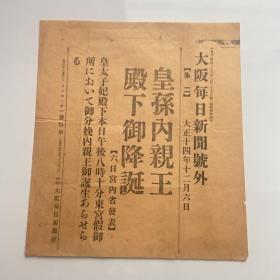 大阪每日新聞號外
【第二】 大正十四年十二月六日
皇孫內親王
殿下御降誕
【六日宮內省發表】
皇太子妃殿下本日午後八時十分東宮假御
所において御分娩內親王御誕生あらせら
る
發行所 大阪每日新聞社